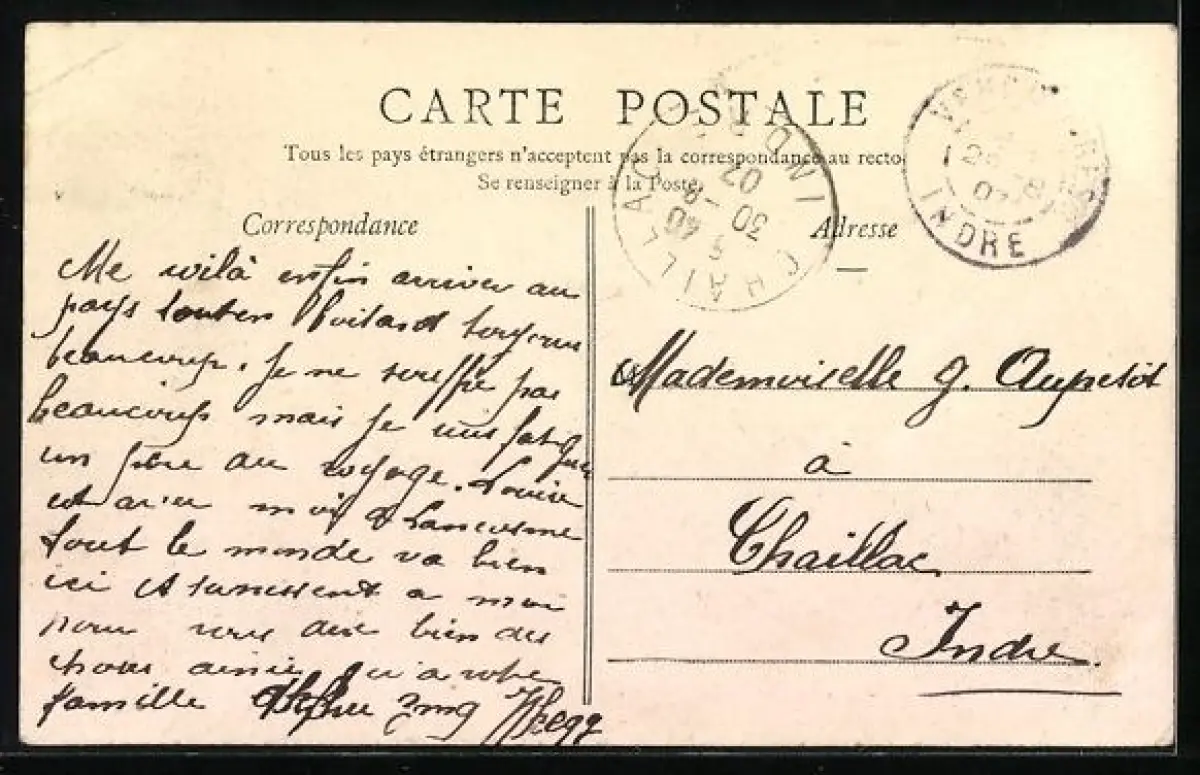 CARTE POSTALE
Tous les pays étrangers n'acceptent pas la correspondance au recto
Se renseigner à la Poste.
Correspondance
Adresse
CHAILLAC INDRE
30 -8 07
INDRE
Me voilà enfin arriver au
pays boitant toujours
beaucoup. Je ne souffre pas
beaucoup mais je suis fatiguée
un peu du voyage. Louise
est avec moi à Lancosme
tout le monde va bien
ici et s'unissent a moi
pour vous dire bien des
choses ainsi qu'a votre
famille
Mademoiselle G. Aupetit
à
Chaillac
Indre.